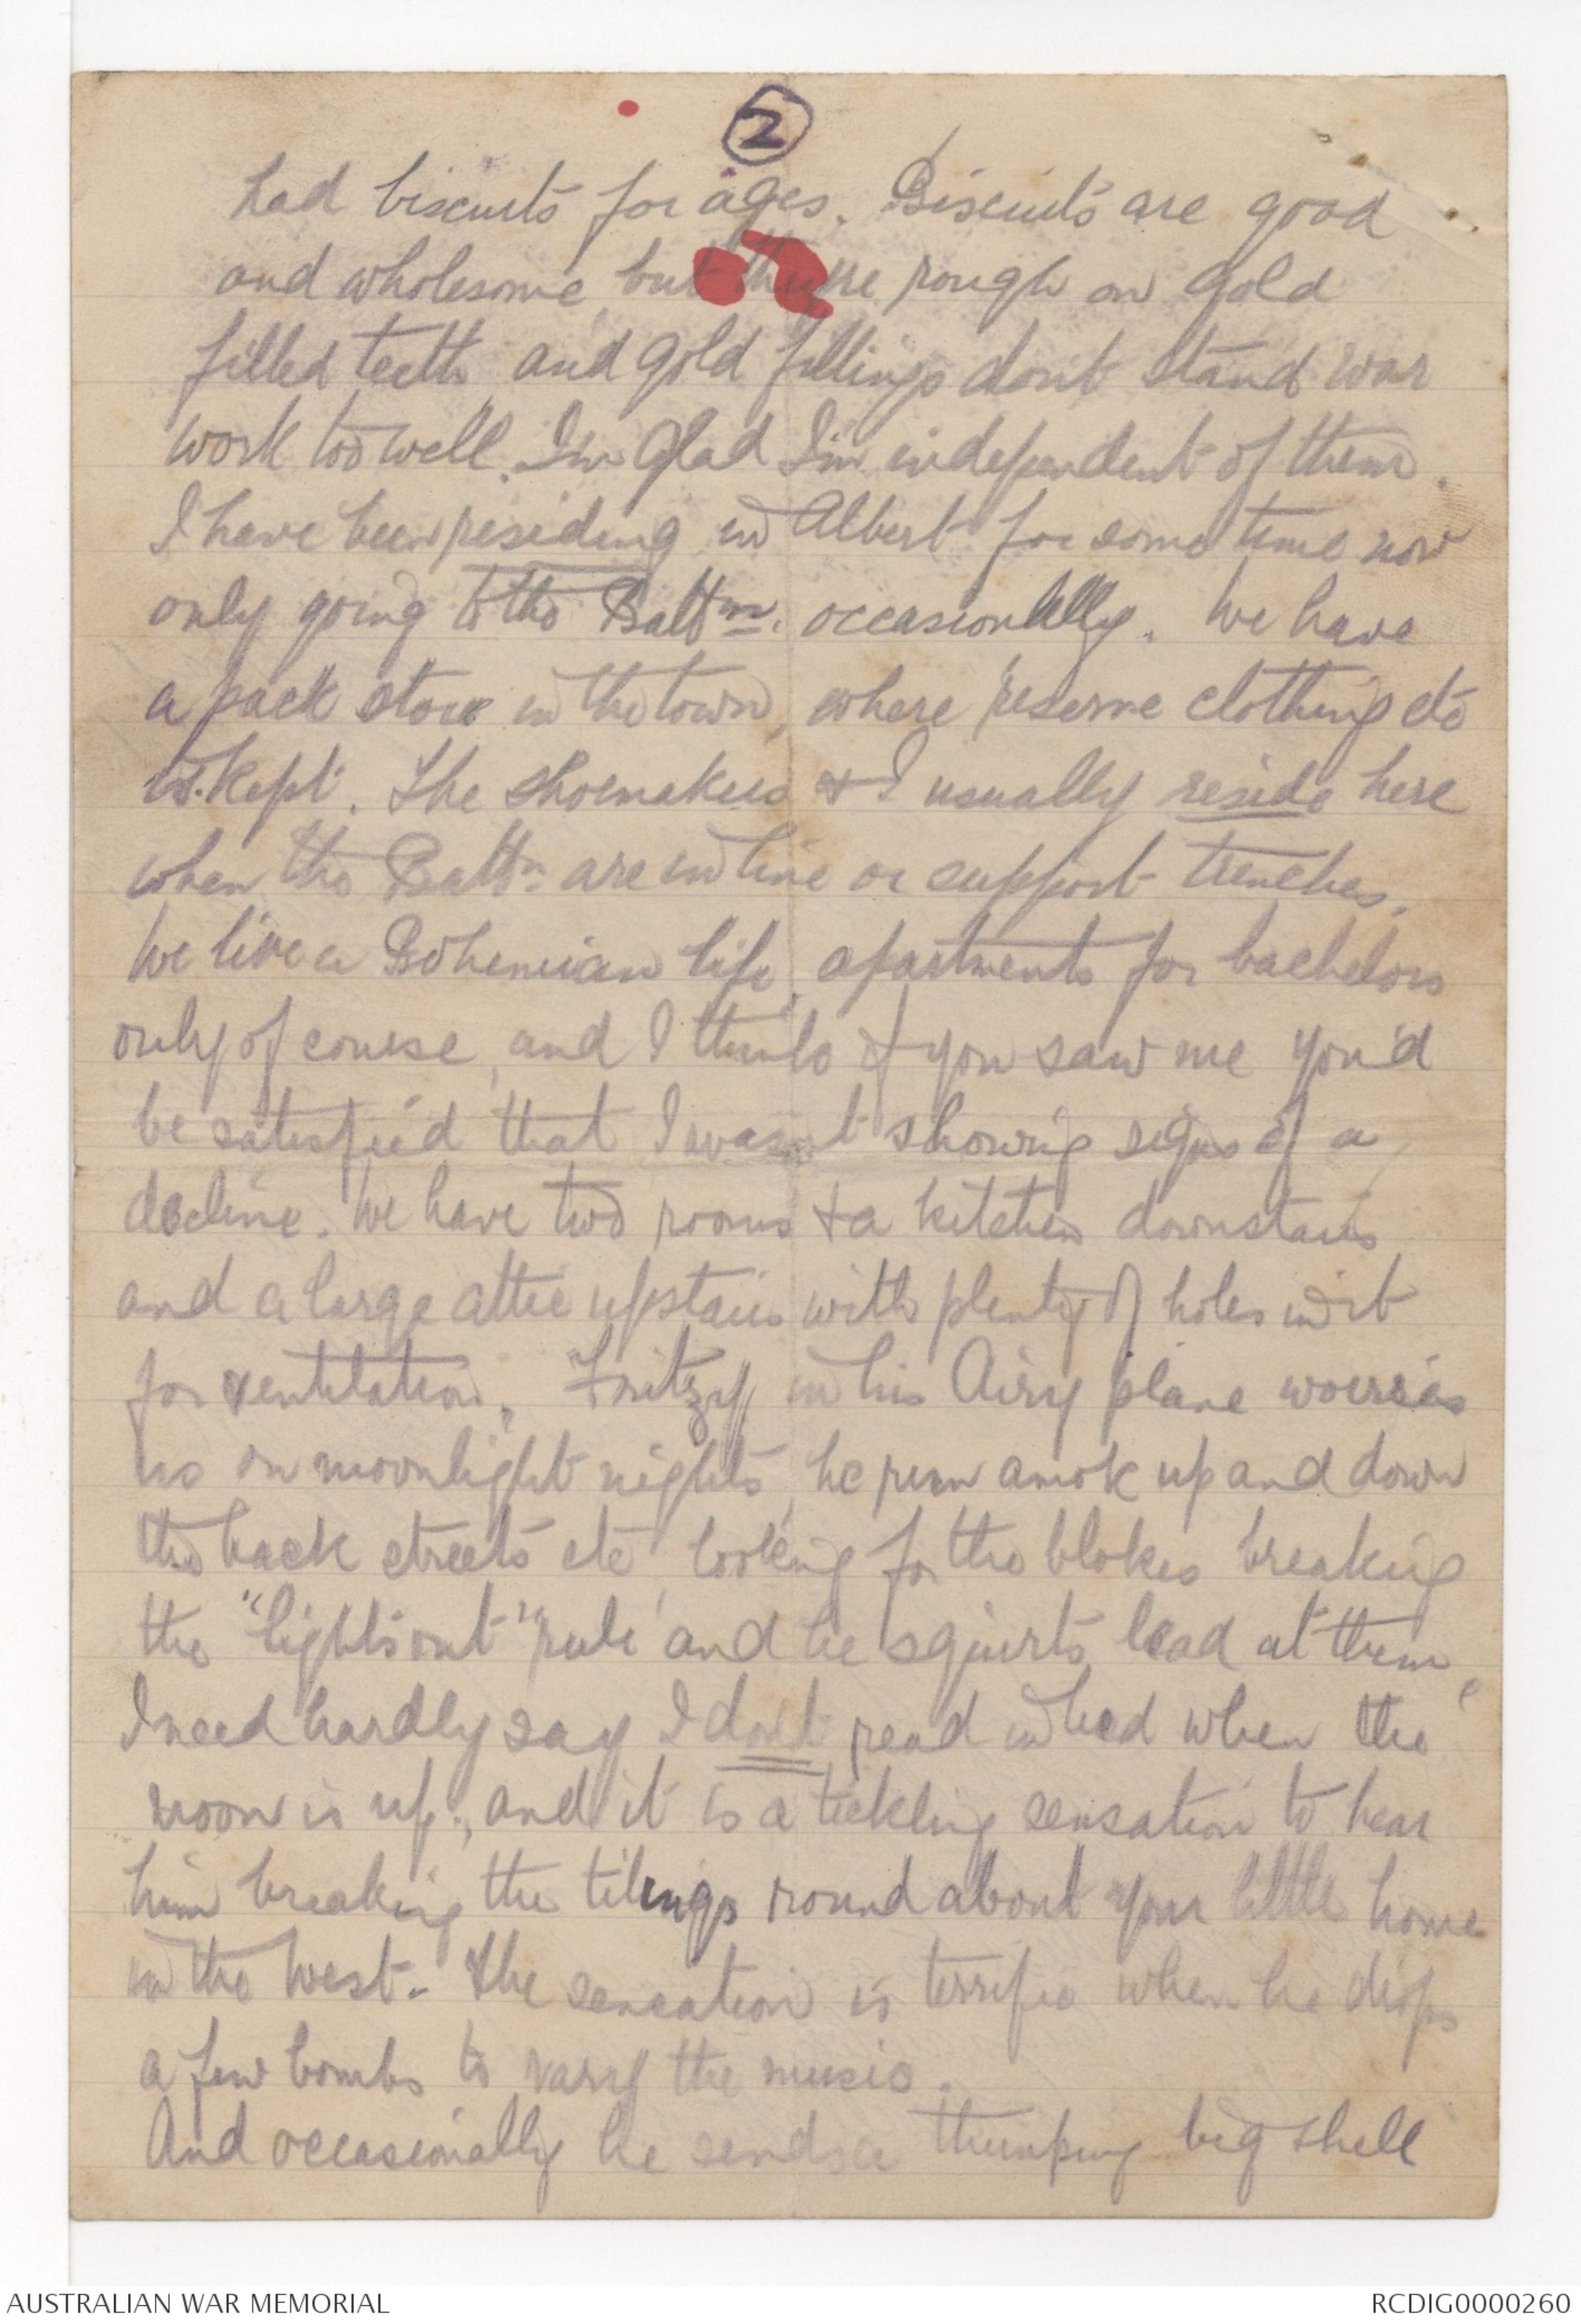 2
had biscuits for ages. Biscuits are good
and wholesome, but they're rough on gold
filled teeth, and gold fillings don't stand war
work too well. I'm glad I'm independent of them.
I have been residing in Albert for some time now
only going to the Battn. occasionally. We have
a pack store in the town, where reserve clothing etc
is kept. The shoemakers & I usually reside here
when the Battn. are in line or support trenches.
We live a Bohemian life, apartments for bachelors
only of course, and I think if you saw me you'd
be satisfied that I wasn't showing signs of a
decline. We have two rooms & a kitchen downstairs
and a large attic upstairs with plenty of holes in it
for ventilation. Fritzy in his Airy plane worries
us on moonlight nights, he runs amok up and down
the back streets etc looking for the blokes breaking
the "lights out" rule and he squirts lead at them,
I need hardly say I don't read in bed when the
moon is up, and it is a tickling sensation to hear
him breaking the tilings round about your little home
in the West. The sensation is terrific when he drops
a few bombs to vary the music.
And occasionally he sends a thumping big shell
AUSTRALIAN WAR MEMORIAL
RCDIG0000260